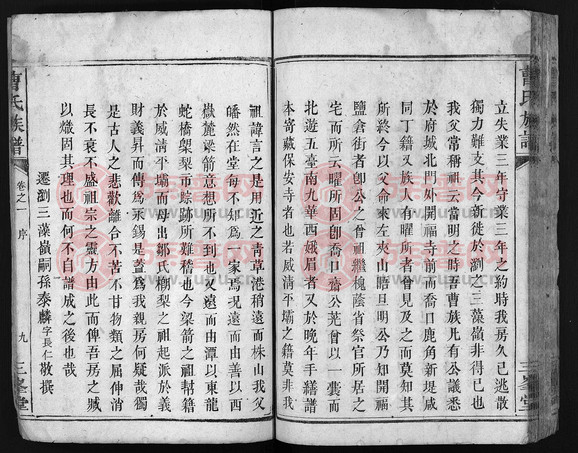 立失業三年守業三年之約時我房久已逃散
獨力難支其今新徙於瀏之三藻嶺非得已也
我父常稱祖云當明之時吾曹族凡有公議悉
於府城北門外開福寺前而喬口鹿角新堤咸
同丁籍又族人有曜所者曾見及之而莫知其
所終今以父命來左夾山晤旦明公乃知開福
鹽倉街者卽公之曾祖繼槐蔭省祭官所居之
宅而所云曜所固卽喬口者公芜曾以一囊而
北遊五臺南九華西峨眉者又於晚年手繕譜
本寄藏保安寺者也若威淸平壩之籍莫非我
祖諱言之是用近之靑草港稍遠而株山我父
皤然在堂每不知為一家焉況遠而由善以西
嶽麓諑箭意想所不到也尤遠而由潭以東龍
蛇橋㮤梨市踪跡所難稽也今梁箭之祖幇籍
於威淸平壩而母出鄒氏柳梨之祖起派於義
財義昇而傳爲永錫是葢爲我親房何疑哉獨
是古人之悲歡離合不苦不甘物類之屈伸消
長不衰不盛祖宗之靈方由此而俾吾房之城
以熾固其理也而何不自譜成之後日也
遷瀏三藻嶺嗣孫泰麟字長仁敬撰
曹氏族譜
卷之一 序
九
三峯堂
曹氏族譜
三峯堂